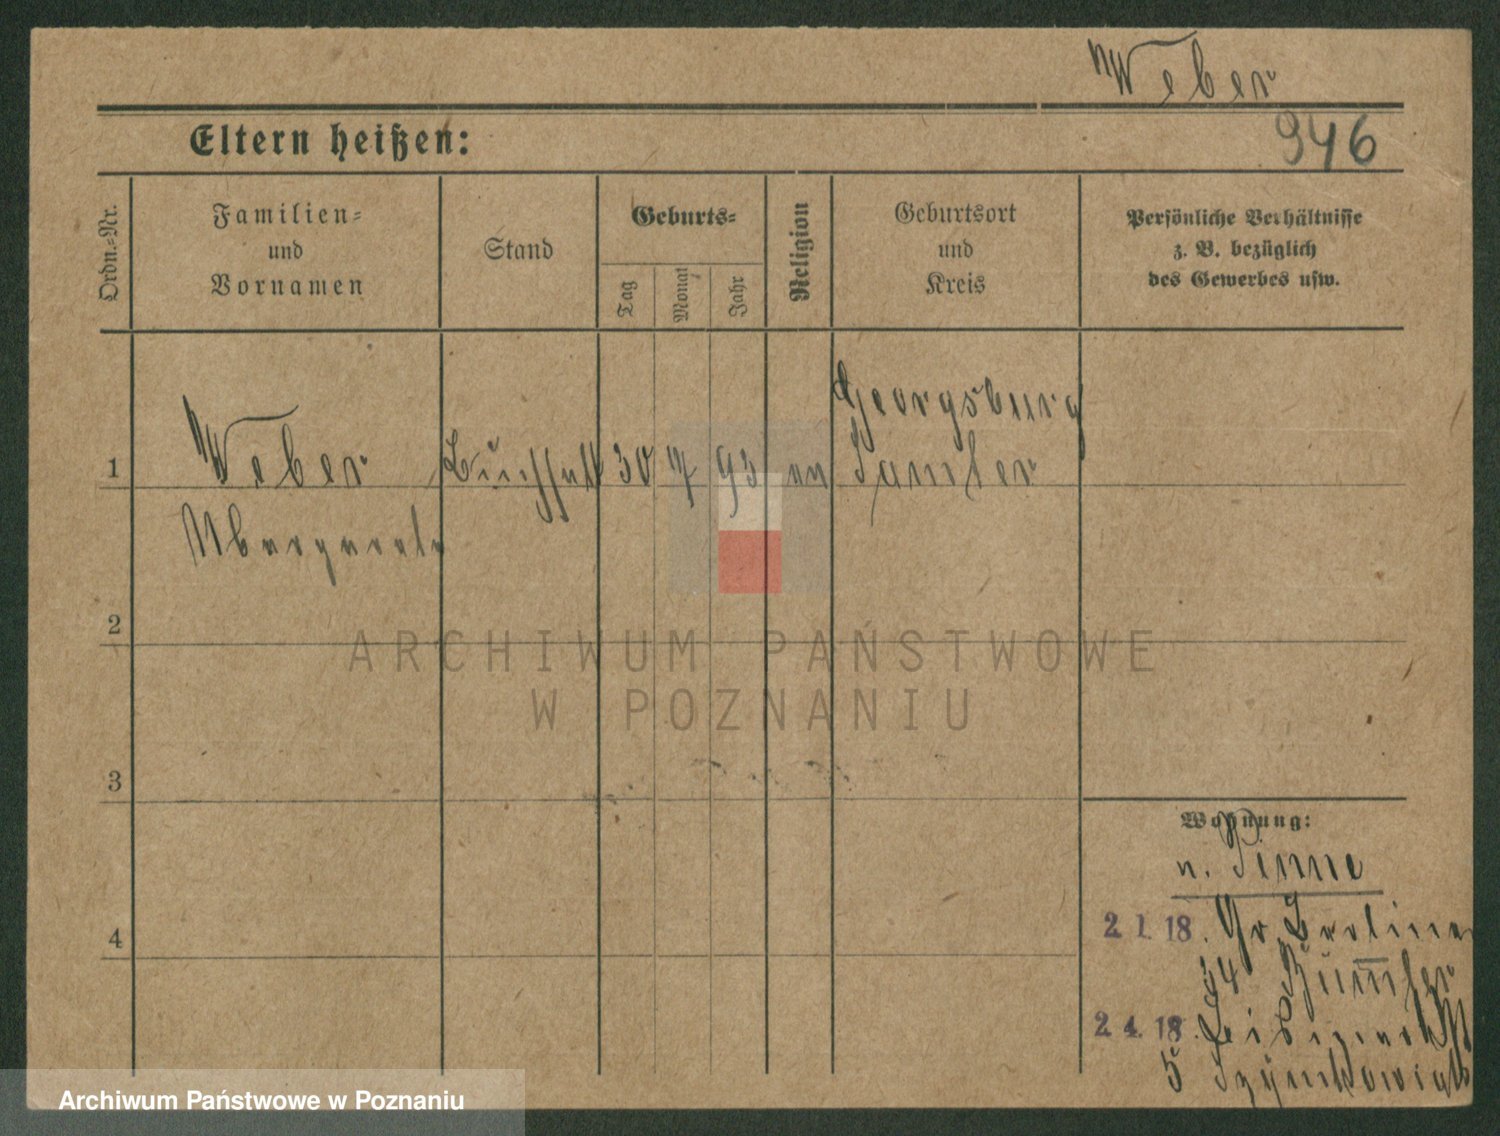 Weber
946
Eltern heißen:
Ordn.-Nr.
Familien-
und
Vornamen
Stand
Geburts-
Tag
Monat
Jahr
Religion
Geburtsort
und
Kreis
Persönliche Verhältnisse
z. B. bezüglich
des Gewerbes usw.
Georgsburg
1
Weber
30
7
93
ev
Samter
Margarete
2
ARCHIWUM PAŃSTWOWE
W POZNANIU
3
Wohnung:
n. Pinne
4
2. 1. 18. Gr. Berliner
2. 4. 18.
5
Archiwum Państwowe w Poznaniu